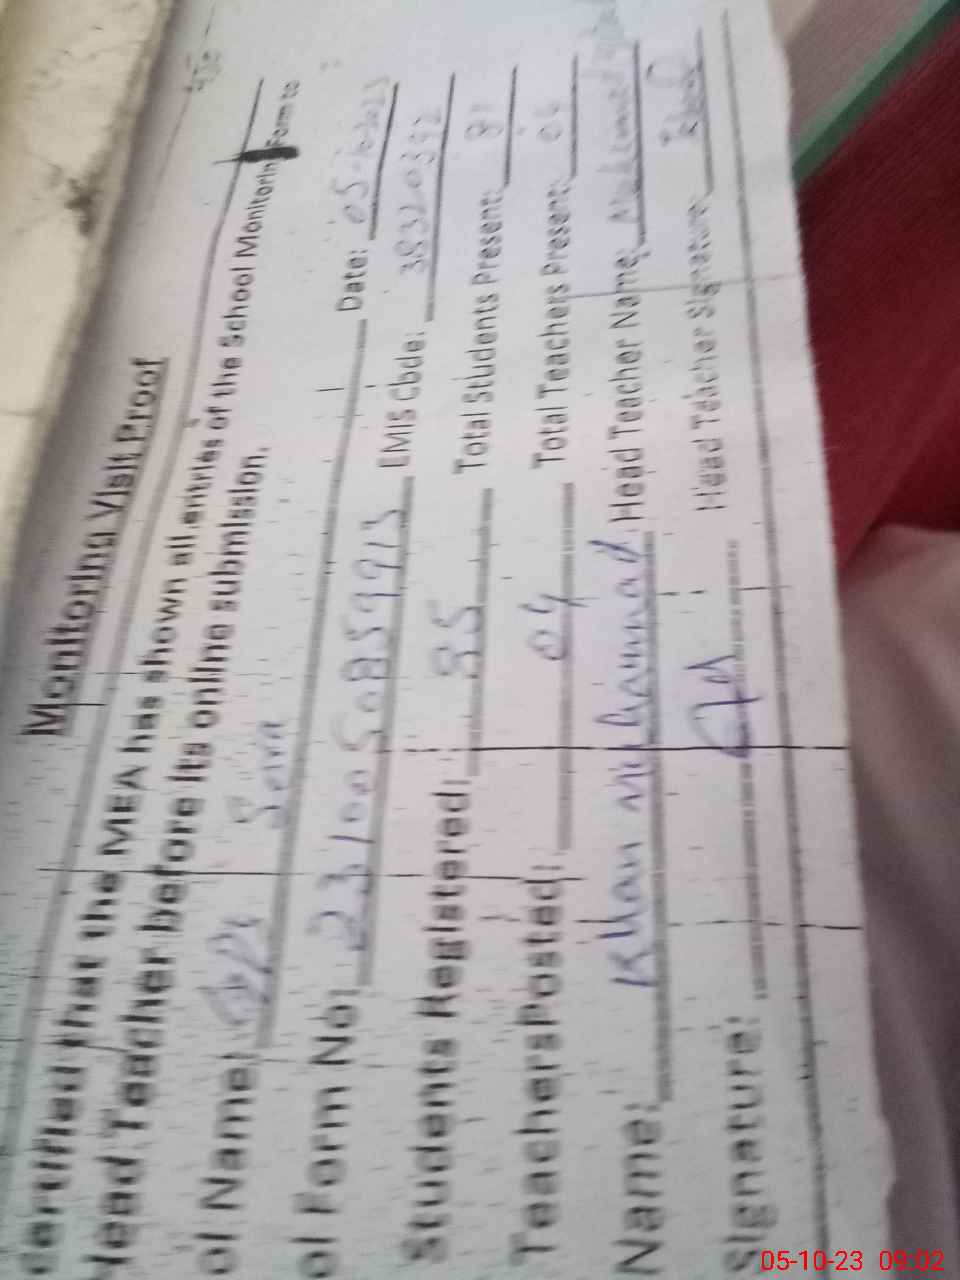 Monitoring Visit Proof
Certified that the MEA has shown all entries of the School Monitoring Form to
Head Teacher before its online submission.
ol Name: GPS Date: 05-10-2023
ol Form No: 2310050859915 EMIS Code:
Students Registered: 85 Total Students Present: 81
Teachers Posted: 04 Total Teachers Present: 04
Name: Khan Muhammad Head Teacher Name:
Signature: Head Teacher Signature:
05-10-23 09:02